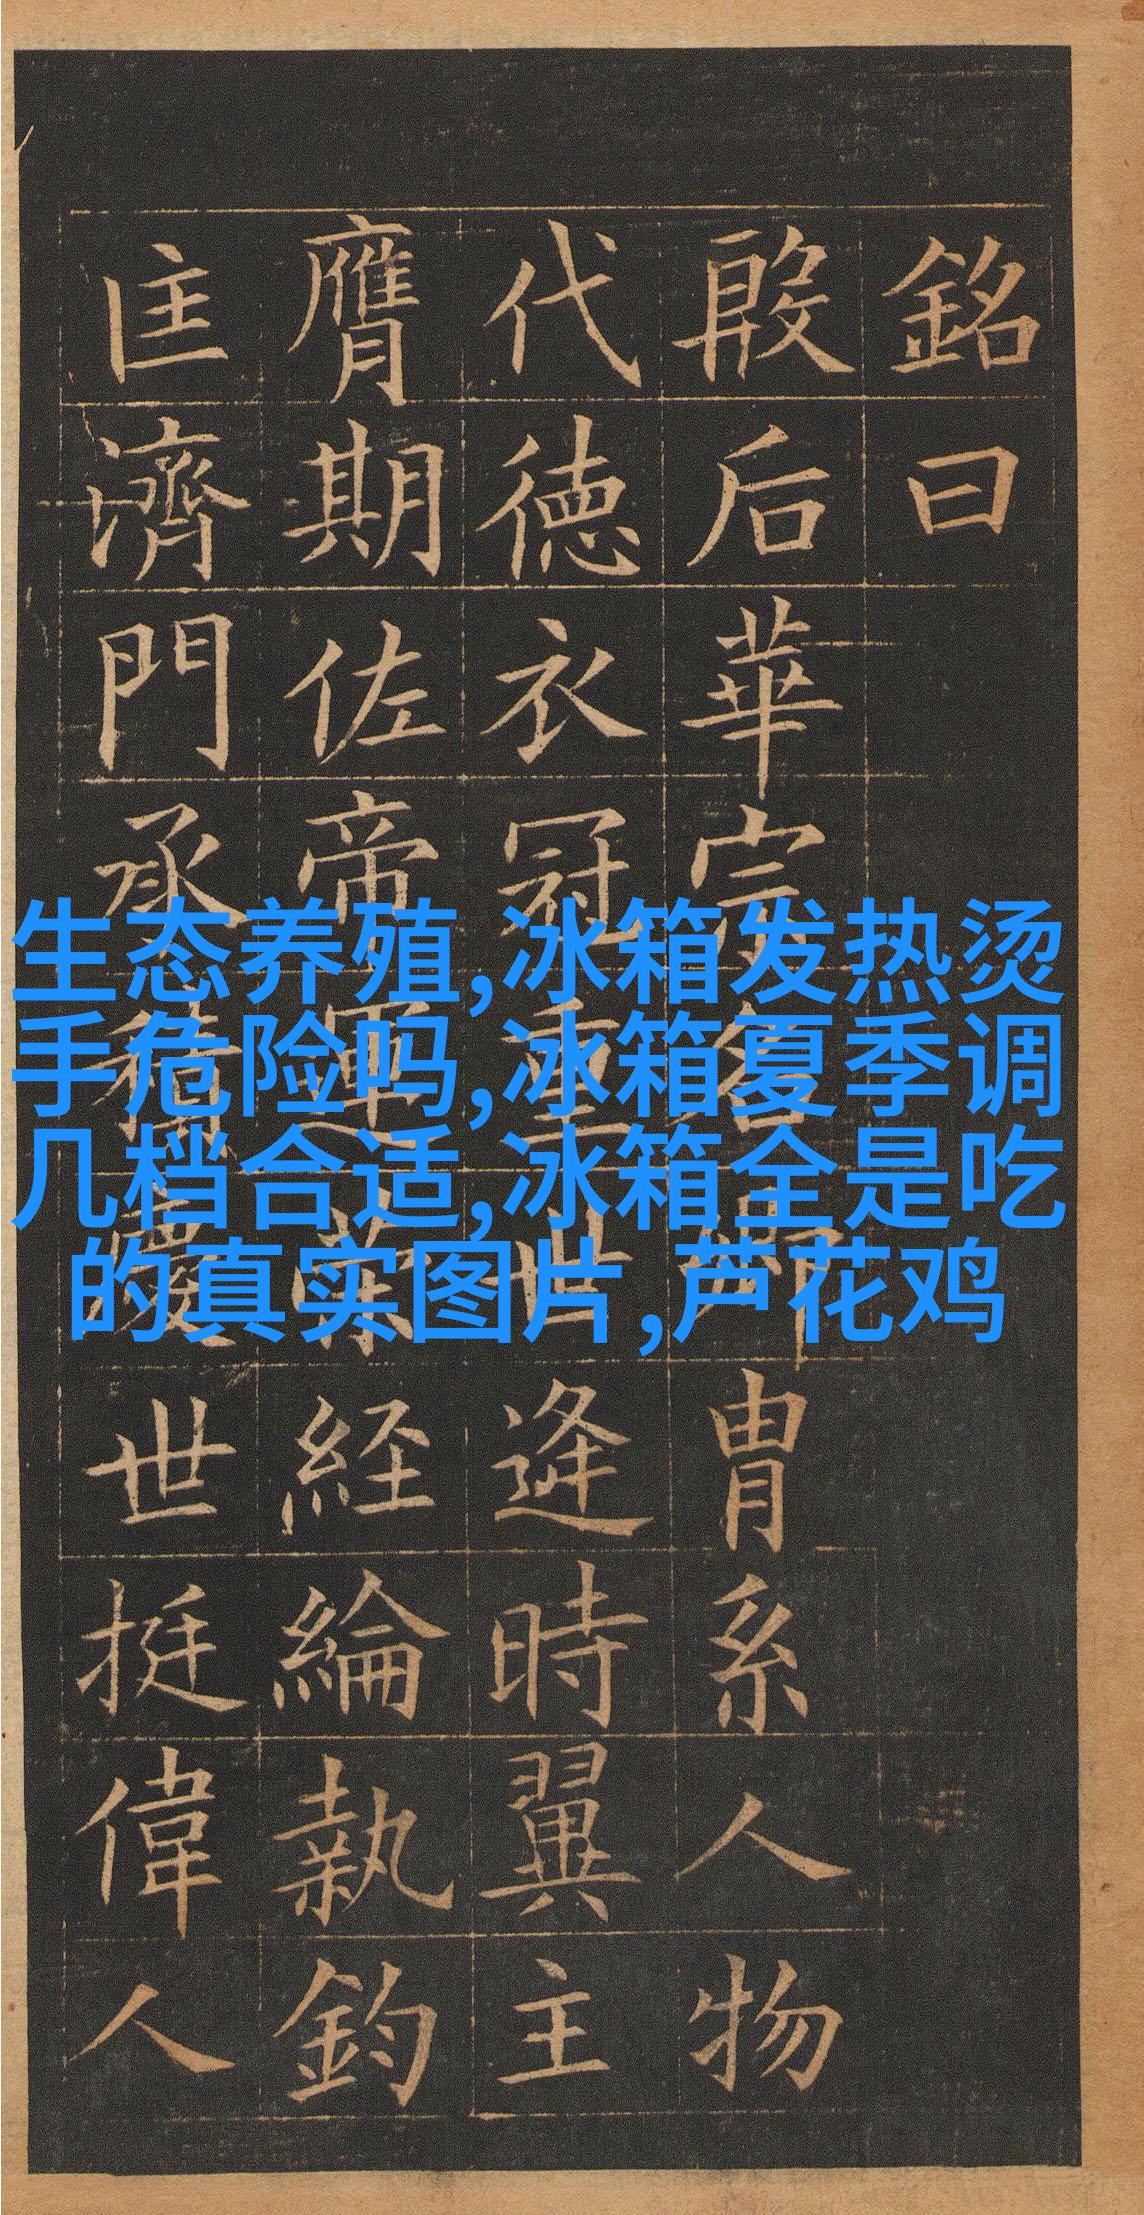 銘曰
殷后華宗名卿冑系人物
代德衣冠重世逢時翼主
膺期佐帝運策経綸執鈞
匡濟門承積慶世挺偉人
生态养殖,冰箱发热烫
手危险吗,冰箱夏季调
几档合适,冰箱全是吃
的真实图片,芦花鸡